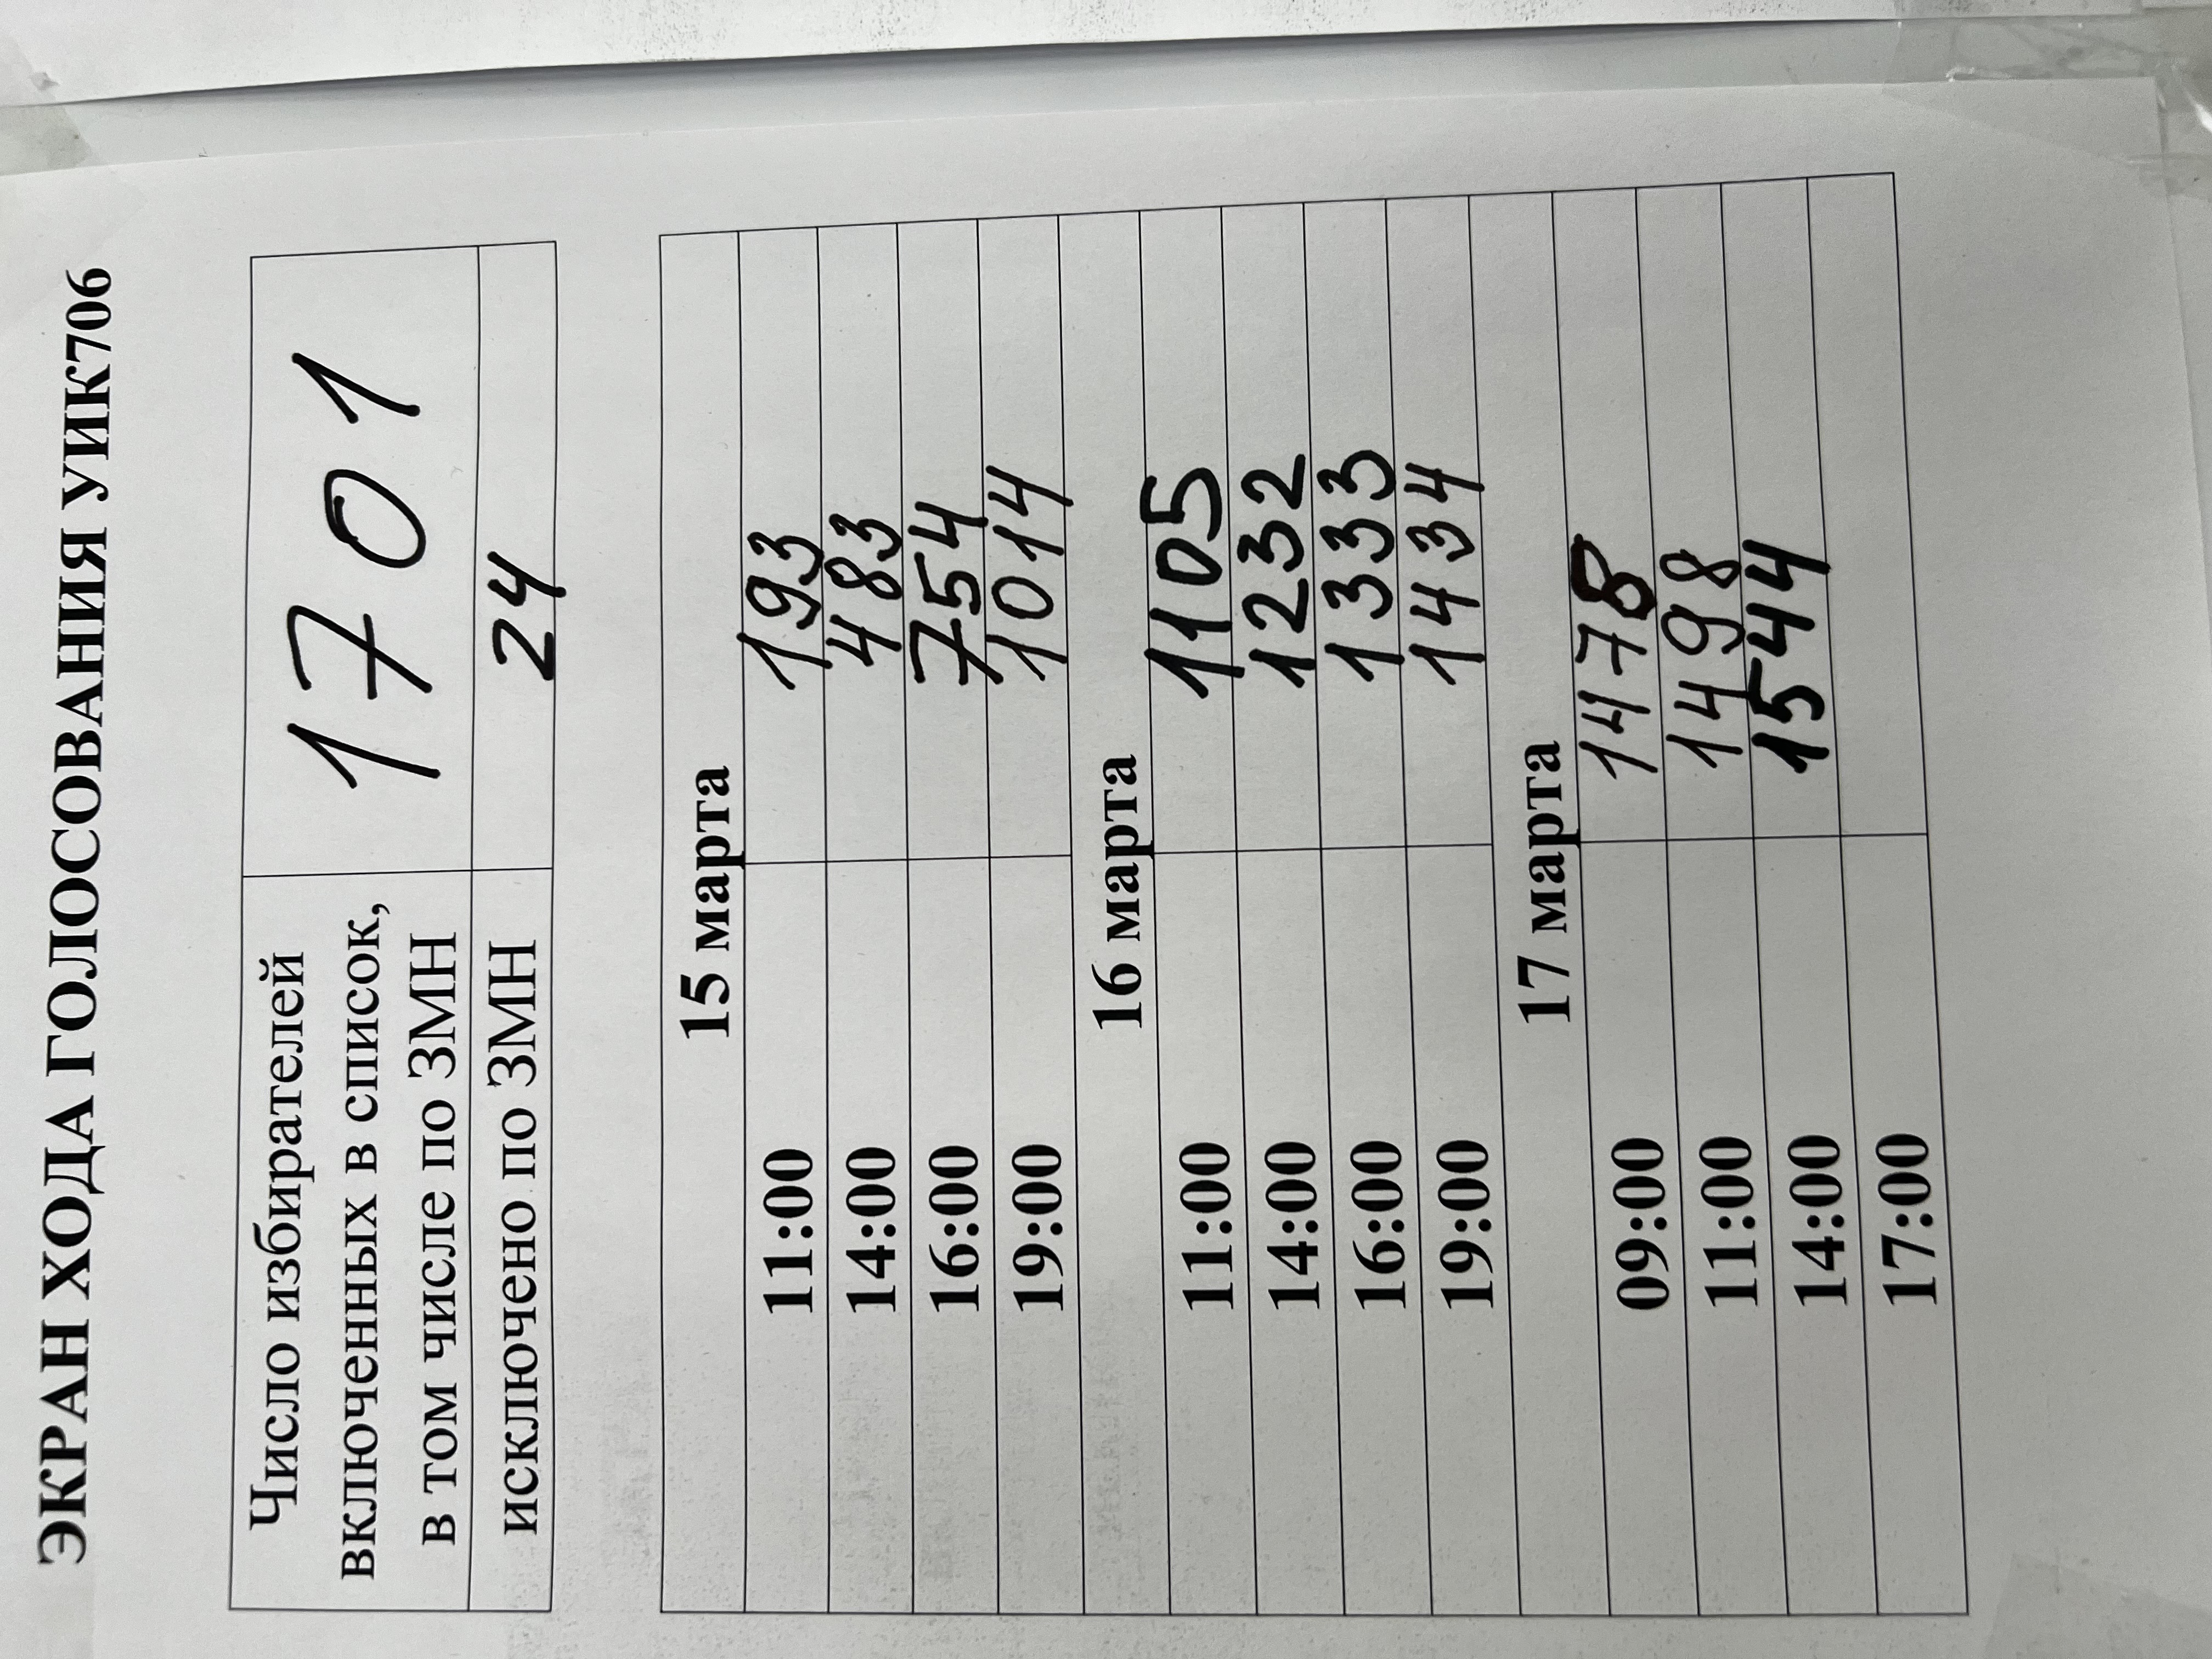 ЭКРАН ХОДА ГОЛОСОВАНИЯ УИК706
Число избирателей
включенных в список,
в том числе по ЗМН
1701
исключено по ЗМН 24
15 марта
11:00 193
14:00 483
16:00 754
19:00 1014
16 марта
11:00 1105
14:00 1232
16:00 1333
19:00 1434
17 марта
09:00 1478
11:00 1498
14:00 1544
17:00